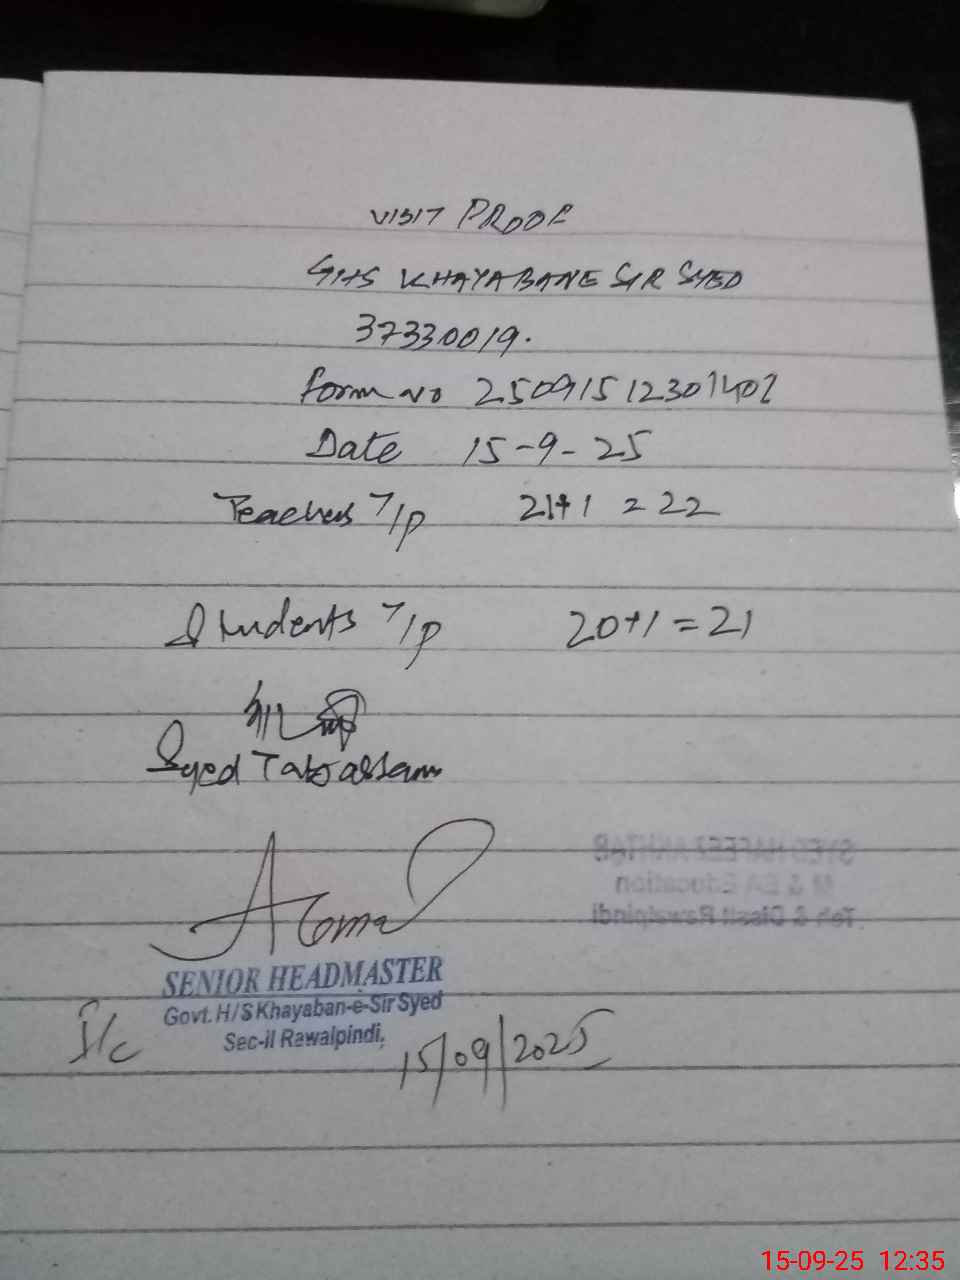 VISIT PROOF
GHS KHAYABANE SIR SYED
37330019.
Form no 25091512301402
Date 15-9-25
Teachers T/P 21+1 = 22
Students T/P 20+1=21
Syed Tabassam
SYED HAFEEZ AKHTAR
M & EA Education
Teh & Distt Rawalpindi
SENIOR HEADMASTER
Govt. H/S Khayaban-e-Sir Syed
Sec-II Rawalpindi,
I/c
15/09/2025
15-09-25 12:35